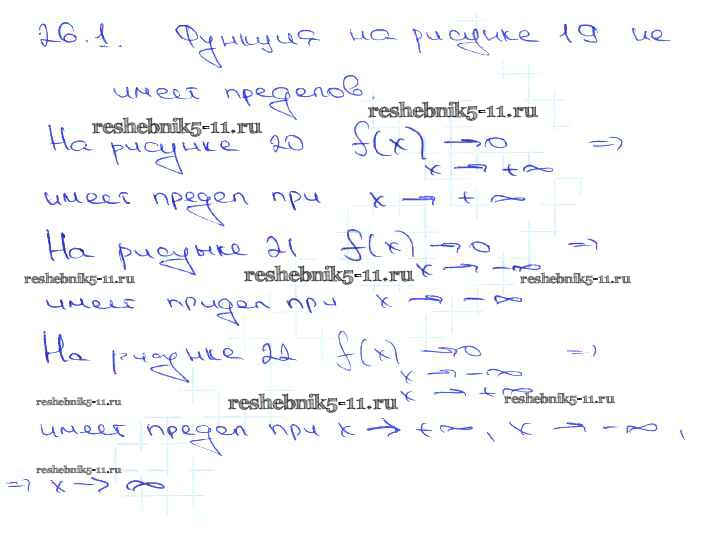 26.1. Функция на рисунке 19 не
имеет пределов.
reshebnik5-11.ru
reshebnik5-11.ru
На рисунке 20 f(x) → 0 =>
x → +∞
имеет предел при x → +∞
На рисунке 21 f(x) → 0 =>
reshebnik5-11.ru
reshebnik5-11.ru
x → -∞
reshebnik5-11.ru
имеет придел при x → -∞
На рисунке 22 f(x) → 0 =>
x → -∞
x → +∞
reshebnik5-11.ru
reshebnik5-11.ru
reshebnik5-11.ru
имеет предел при x → +∞, x → -∞,
reshebnik5-11.ru
=> x → ∞